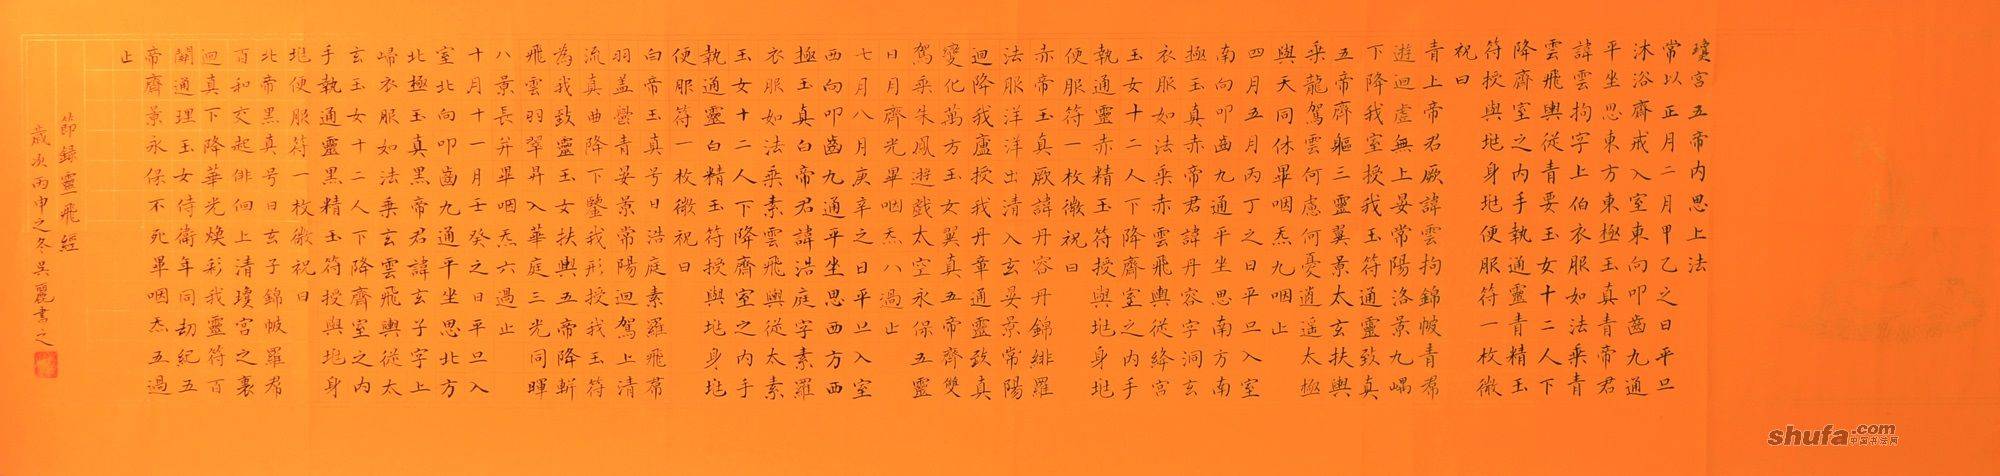 瓊宮五帝内思上法
常以正月二月甲乙之日平旦
沐浴齊戒入室東向叩齒九通
平坐思東方東極玉真青帝君
諱雲拘字上伯衣服如法乘青
雲飛輿從青要玉女十二人下
降齊室之内手執通靈青精玉
符授與兆身兆便服符一枚微
祝曰
青上帝君厥諱雲拘錦帔青帬
遊迴虛無上晏常陽洛景九嵎
下降我室授我玉符通靈致真
五帝齊軀三靈翼景太玄扶輿
乘龍駕雲何慮何憂逍遥太極
與天同休畢咽炁九咽止
四月五月丙丁之日平旦入室
南向叩齒九通平坐思南方南
極玉真赤帝君諱丹容字洞玄
衣服如法乘赤雲飛輿從絳宮
玉女十二人下降齊室之内手
執通靈赤精玉符授與兆身兆
便服符一枚微祝曰
赤帝玉真厥諱丹容丹錦緋羅
法服洋洋出清入玄晏景常陽
迴降我廬授我丹章通靈致真
變化萬方玉女翼真五帝齊雙
駕乘朱鳳遊戲太空永保五靈
日月齊光畢咽炁八過止
七月八月庚辛之日平旦入室
西向叩齒九通平坐思西方西
極玉真白帝君諱浩庭字素羅
衣服如法乘素雲飛輿從太素
玉女十二人下降齊室之内手
執通靈白精玉符授與兆身兆
便服符一枚微祝曰
白帝玉真号曰浩庭素羅飛帬
羽盖欝青晏景常陽迴駕上清
流真曲降下鑒我形授我玉符
為我致靈玉女扶輿五帝降軿
飛雲羽翠昇入華庭三光同暉
八景長并畢咽炁六過止
十月十一月壬癸之日平旦入
室北向叩齒九通平坐思北方
北極玉真黑帝君諱玄子字上
歸衣服如法乘玄雲飛輿從太
玄玉女十二人下降齊室之内
手執通靈黑精玉符授與兆身
兆便服符一枚微祝曰
北帝黑真号曰玄子錦帔羅帬
百和交起俳佪上清瓊宮之裏
迴真下降華光煥彩我靈符百
關通理玉女侍衛年同劫紀五
帝齊景永保不死畢咽炁五過
止
節録靈飛經
歲次丙申之冬吳麗書之
shufa.com
中国书法网